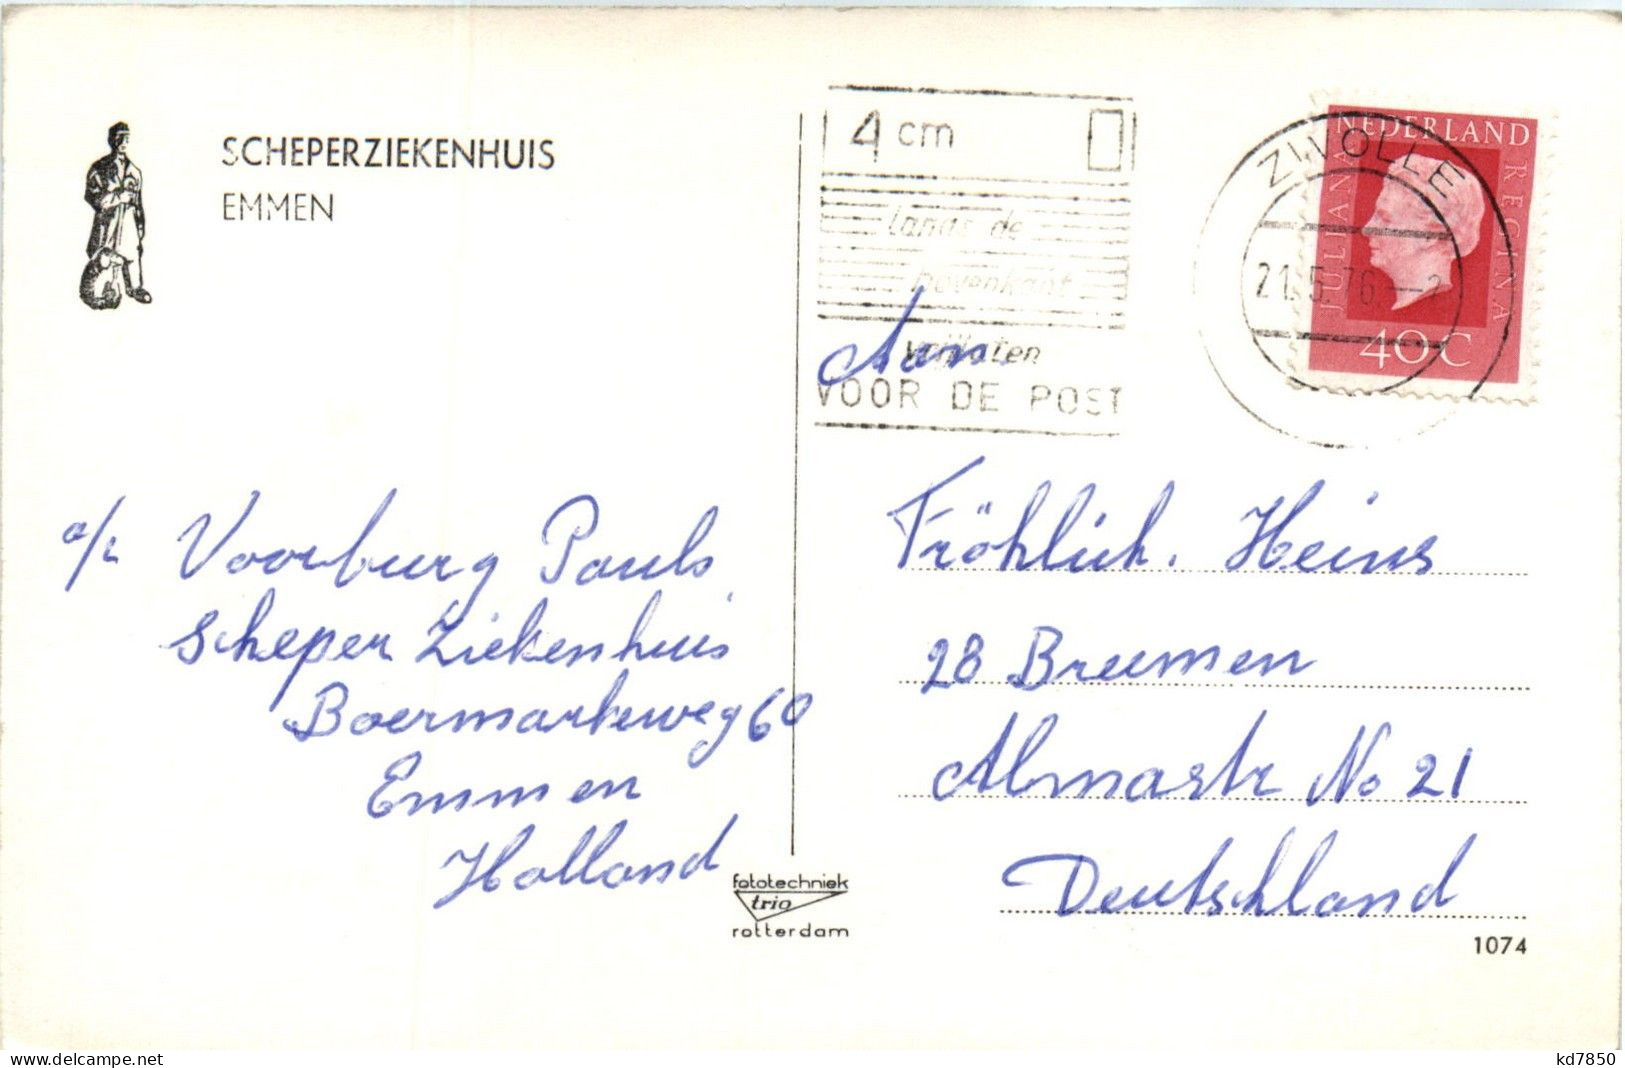 SCHEPERZIEKENHUIS
EMMEN
4 cm
langs de
bovenkant
vrijlaten
VOOR DE POST
ZWOLLE
21.5.76.—2
NEDERLAND
JULIANA
REGINA
40C
Aan
a/z Voorburg Pauls
Scheper Ziekenhuis
Boermarkeweg 60
Emmen
Holland
Fröhlich. Heins
28 Breumen
Almastr No 21
Deutschland
fototechniek
trio
rotterdam
1074
delcampe.net
kd7850